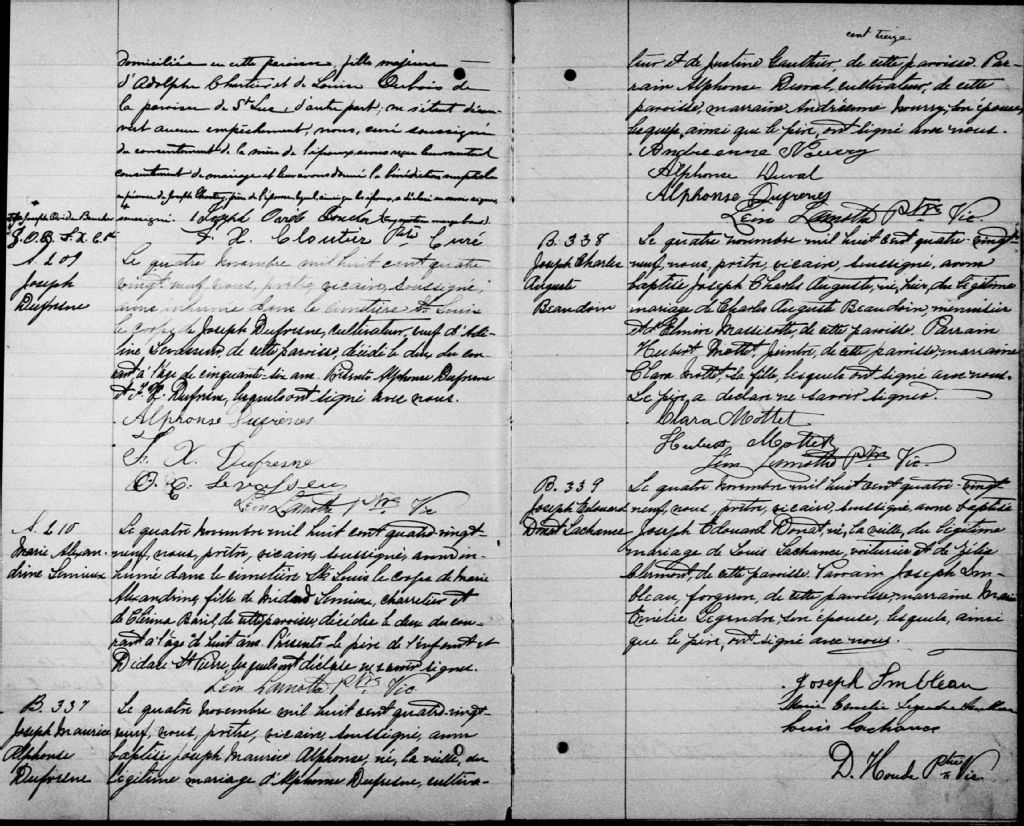 domiciliée en cette paroisse, fille majeure
d'Adolphe Chartier et de Louise Dubois de
la paroisse de St Luc, d'autre part; ne s'étant décou-
vert aucun empêchement, nous, curé soussigné
du consentement de la mère de l'époux, avons reçu leur mutuel
consentement de mariage et leur avons donné la bénédiction nuptiale
en présence de Joseph
soussigné
F. X. Cloutier Ptre Curé
S. 209
Joseph
Dufresne
Le quatre novembre mil huit cent quatre
vingt neuf, nous, prêtre, vicaire, soussigné,
avons inhumé dans le cimetière St Louis
le corps de Joseph Dufresne, cultivateur, veuf d'Ade-
line Levasseur, de cette paroisse, décédé le deux du cou-
rant à l'âge de cinquante-six ans. Présents Alphonse Dufresne
et F. X. Dufresne, lesquels ont signé avec nous.
Alphonse Dufresnes
F. X. Dufresne
O. C. Levasseur
Léon Lamothe Ptre Vic
S. 210
Marie Alexan-
drine Lemieux
Le quatre novembre mil huit cent quatre-vingt-
neuf, nous, prêtre, vicaire, soussigné, avons in-
humé dans le cimetière St Louis le corps de Marie
Alexandrine, fille de Lemieux, charretier et
de Clerina Baril, de cette paroisse, décédée le deux du cou-
rant à l'âge de huit ans. Présents le père de l'enfant et
Didace St Pierre, lesquels ont déclaré ne savoir signer.
Léon Lamothe Ptre Vic
B. 337
Joseph Maurice
Alphonse
Dufresne
Le quatre novembre mil huit cent quatre-vingt-
neuf, nous, prêtre, vicaire, soussigné, avons
baptisé Joseph Maurice Alphonse, né, la veille, du
légitime mariage d'Alphonse Dufresne, cultiva-
cent treize
teur et de Justine Gauthier, de cette paroisse. Par-
rain Alphonse Duval, cultivateur, de cette
paroisse, marraine Andréenne Nourry, son épouse,
lesquels, ainsi que le père, ont signé avec nous.
Andreenne Nourry
Alphonse Duval
Alphonse Dufresnes
Léon Lamothe Ptre Vic.
B. 338
Joseph Charles
Auguste
Beaudoin
Le quatre novembre mil huit cent quatre-vingt-
neuf, nous, prêtre, vicaire, soussigné, avons
baptisé Joseph Charles Auguste, né, hier, du légitime
mariage de Charles Auguste Beaudoin, menuisier
et d'Elmire Massicotte, de cette paroisse. Parrain
Hubert Mottet, peintre, de cette paroisse, marraine
Clara Mottet, sa fille, lesquels ont signé avec nous.
Le père a déclaré ne savoir signer.
Clara Mottet
Hubert Mottet
Léon Lamothe Ptre Vic.
B. 339
Joseph Edouard
Donat Lachance
Le quatre novembre mil huit cent quatre-vingt
neuf, nous, prêtre, vicaire, soussigné, avons baptisé
Joseph Edouard Donat, né, la veille, du légitime
mariage de Louis Lachance, voiturier et de Zélia
Clermont, de cette paroisse. Parrain Joseph Im-
bleau, forgeron, de cette paroisse, marraine Marie
Emélie Legendre, son épouse, lesquels, ainsi
que le père, ont signé avec nous.
Joseph Imbleau
Marie Emelie Legendre Imbleau
Louis Lachance
D. Houde Ptre Vic